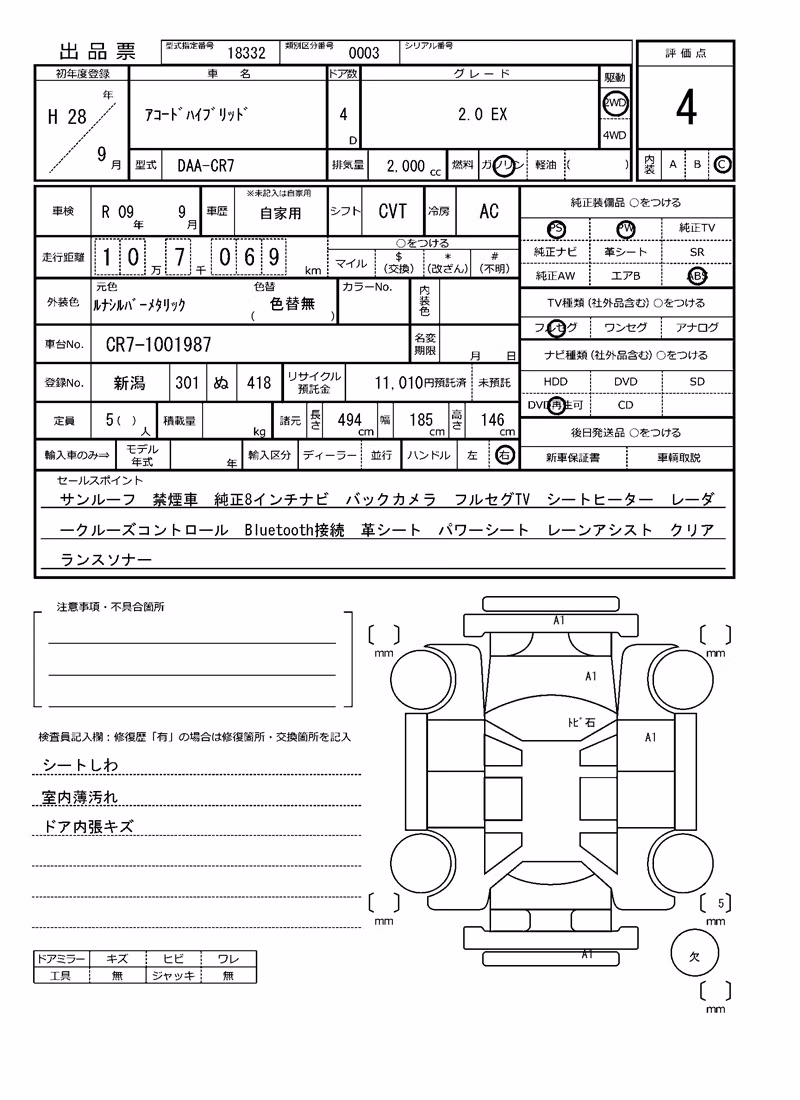 出品票 型式指定番号 18332 類別区分番号 0003 シリアル番号
評価点
初年度登録 車名 ドア数 グレード 駆動
H 28 年 9 月 アコードハイブリッド 4 D 2.0 EX 2WD 4WD
4
型式 DAA-CR7 排気量 2,000 cc 燃料 ガソリン 軽油 ( )
内装 A B C
車検 R 09 年 9 月 車歴 ※未記入は自家用 自家用 シフト CVT 冷房 AC
走行距離 1 0 万 7 千 0 6 9 km ○をつける マイル $ (交換) * (改ざん) # (不明)
外装色 元色 ルナシルバーメタリック 色替 ( 色替無 ) カラーNo. 内装色
車台No. CR7-1001987 名変期限 月 日
登録No. 新潟 301 ぬ 418 リサイクル預託金 11,010円預託済 未預託
定員 5( ) 人 積載量 kg 諸元 長さ 494 cm 幅 185 cm 高さ 146 cm
輸入車のみ⇒ モデル年式 年 輸入区分 ディーラー 並行 ハンドル 左 右
純正装備品 ○をつける
PS PW 純正TV
純正ナビ 革シート SR
純正AW エアB ABS
TV種類(社外品含む)○をつける
フルセグ ワンセグ アナログ
ナビ種類(社外品含む)○をつける
HDD DVD SD
DVD再生可 CD
後日発送品 ○をつける
新車保証書 車輌取説
セールスポイント
サンルーフ 禁煙車 純正8インチナビ バックカメラ フルセグTV シートヒーター レーダ
ークルーズコントロール Bluetooth接続 革シート パワーシート レーンアシスト クリア
ランスソナー
注意事項・不具合箇所
検査員記入欄:修復歴「有」の場合は修復箇所・交換箇所を記入
シートしわ
室内薄汚れ
ドア内張キズ
ドアミラー キズ ヒビ ワレ
工具 無 ジャッキ 無
A1
mm mm
A1
トビ石
A1
5
mm mm
A1
欠
mm